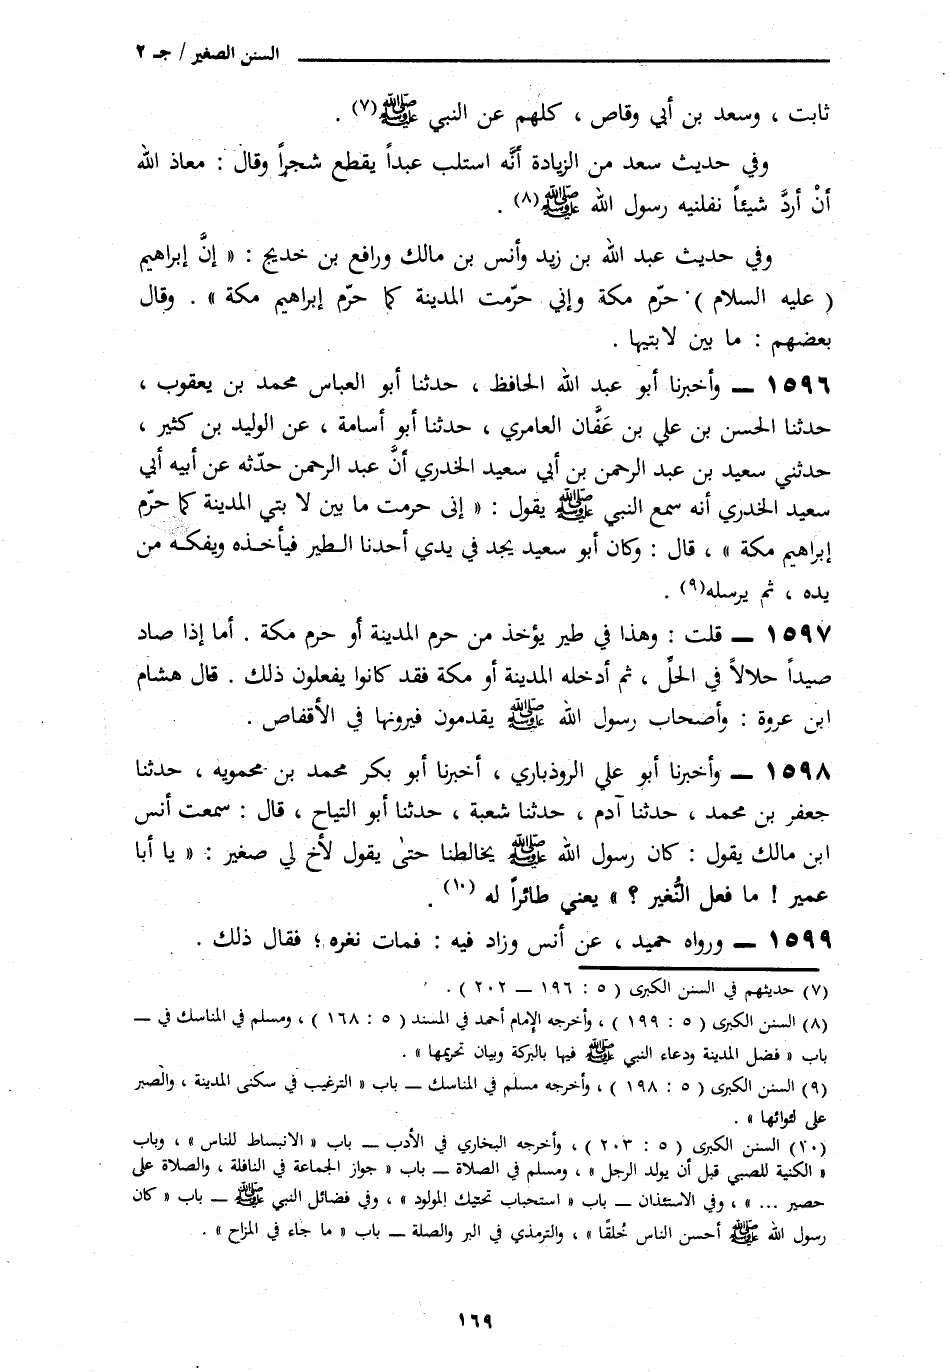 السنن الصغير / جـ ٢
ثابت ، وسعد بن أبي وقاص ، كلهم عن النبي ﷺ(٧) .
وفي حديث سعد من الزيادة أنَّه استلب عبداً يقطع شجراً وقال : معاذ الله
أنْ أردَّ شيئاً نفلنيه رسول الله ﷺ(٨) .
وفي حديث عبد الله بن زيد وأنس بن مالك ورافع بن خديج : « إنَّ إبراهيم
( عليه السلام ) حرّم مكة وإني حرّمت المدينة كما حرّم إبراهيم مكة » . وقال
بعضهم : ما بين لابتيها .
١٥٩٦ ــ وأخبرنا أبو عبد الله الحافظ ، حدثنا أبو العباس محمد بن يعقوب ،
حدثنا الحسن بن علي بن عَفَّان العامري ، حدثنا أبو أسامة ، عن الوليد بن كثير ،
حدثني سعيد بن عبد الرحمن بن أبي سعيد الخدري أنَّ عبد الرحمن حدّثه عن أبيه أبي
سعيد الخدري أنه سمع النبي ﷺ يقول : « إنى حرمت ما بين لا بتي المدينة كما حرّم
إبراهيم مكة » ، قال : وكان أبو سعيد يجد في يدي أحدنا الـطير فيأخـذه ويفكـه من
يده ، ثم يرسله(٩) .
١٥٩٧ ــ قلت : وهذا في طير يؤخذ من حرم المدينة أو حرم مكة . أما إذا صاد
صيداً حلالاً في الحلِّ ، ثم أدخله المدينة أو مكة فقد كانوا يفعلون ذلك . قال هشام
ابن عروة : وأصحاب رسول الله ﷺ يقدمون فيرونها في الأقفاص .
١٥٩٨ ــ وأخبرنا أبو علي الروذباري ، أخبرنا أبو بكر محمد بن محمويه ، حدثنا
جعفر بن محمد ، حدثنا آدم ، حدثنا شعبة ، حدثنا أبو التياح ، قال : سمعت أنس
ابن مالك يقول : كان رسول الله ﷺ يخالطنا حتىٰ يقول لأخ لي صغير : « يا أبا
عمير ! ما فعل النُّغير ؟ » يعني طائراً له (١٠) .
١٥٩٩ ــ ورواه حميد ، عن أنس وزاد فيه : فمات نغره ؛ فقال ذلك .
(٧) حديثهم في السنن الكبرى ( ٥ : ١٩٦ ــ ٢٠٢ ) .
(٨) السنن الكبرى ( ٥ : ١٩٩ ) ، وأخرجه الإمام أحمد في المسند ( ٥ : ١٦٨ ) ، ومسلم في المناسك في ــ
باب « فضل المدينة ودعاء النبي ﷺ فيها بالبركة وبيان تحريمها » .
(٩) السنن الكبرى ( ٥ : ١٩٨ ) ، وأخرجه مسلم في المناسك ــ باب « الترغيب في سكنى المدينة ، والصبر
على لوائها » .
(١٠) السنن الكبرى ( ٥ : ٢٠٣ ) ، وأخرجه البخاري في الأدب ــ باب « الانبساط للناس » ، وباب
« الكنية للصبي قبل أن يولد الرجل » ، ومسلم في الصلاة ــ باب « جواز الجماعة في النافلة ، والصلاة على
حصير ... » ، وفي الاستئذان ــ باب « استحباب تحنيك المولود » ، وفي فضائل النبي ﷺ ــ باب « كان
رسول الله ﷺ أحسن الناس خُلقًا » ، والترمذي في البر والصلة ــ باب « ما جاء في المزاح » .
١٦٩